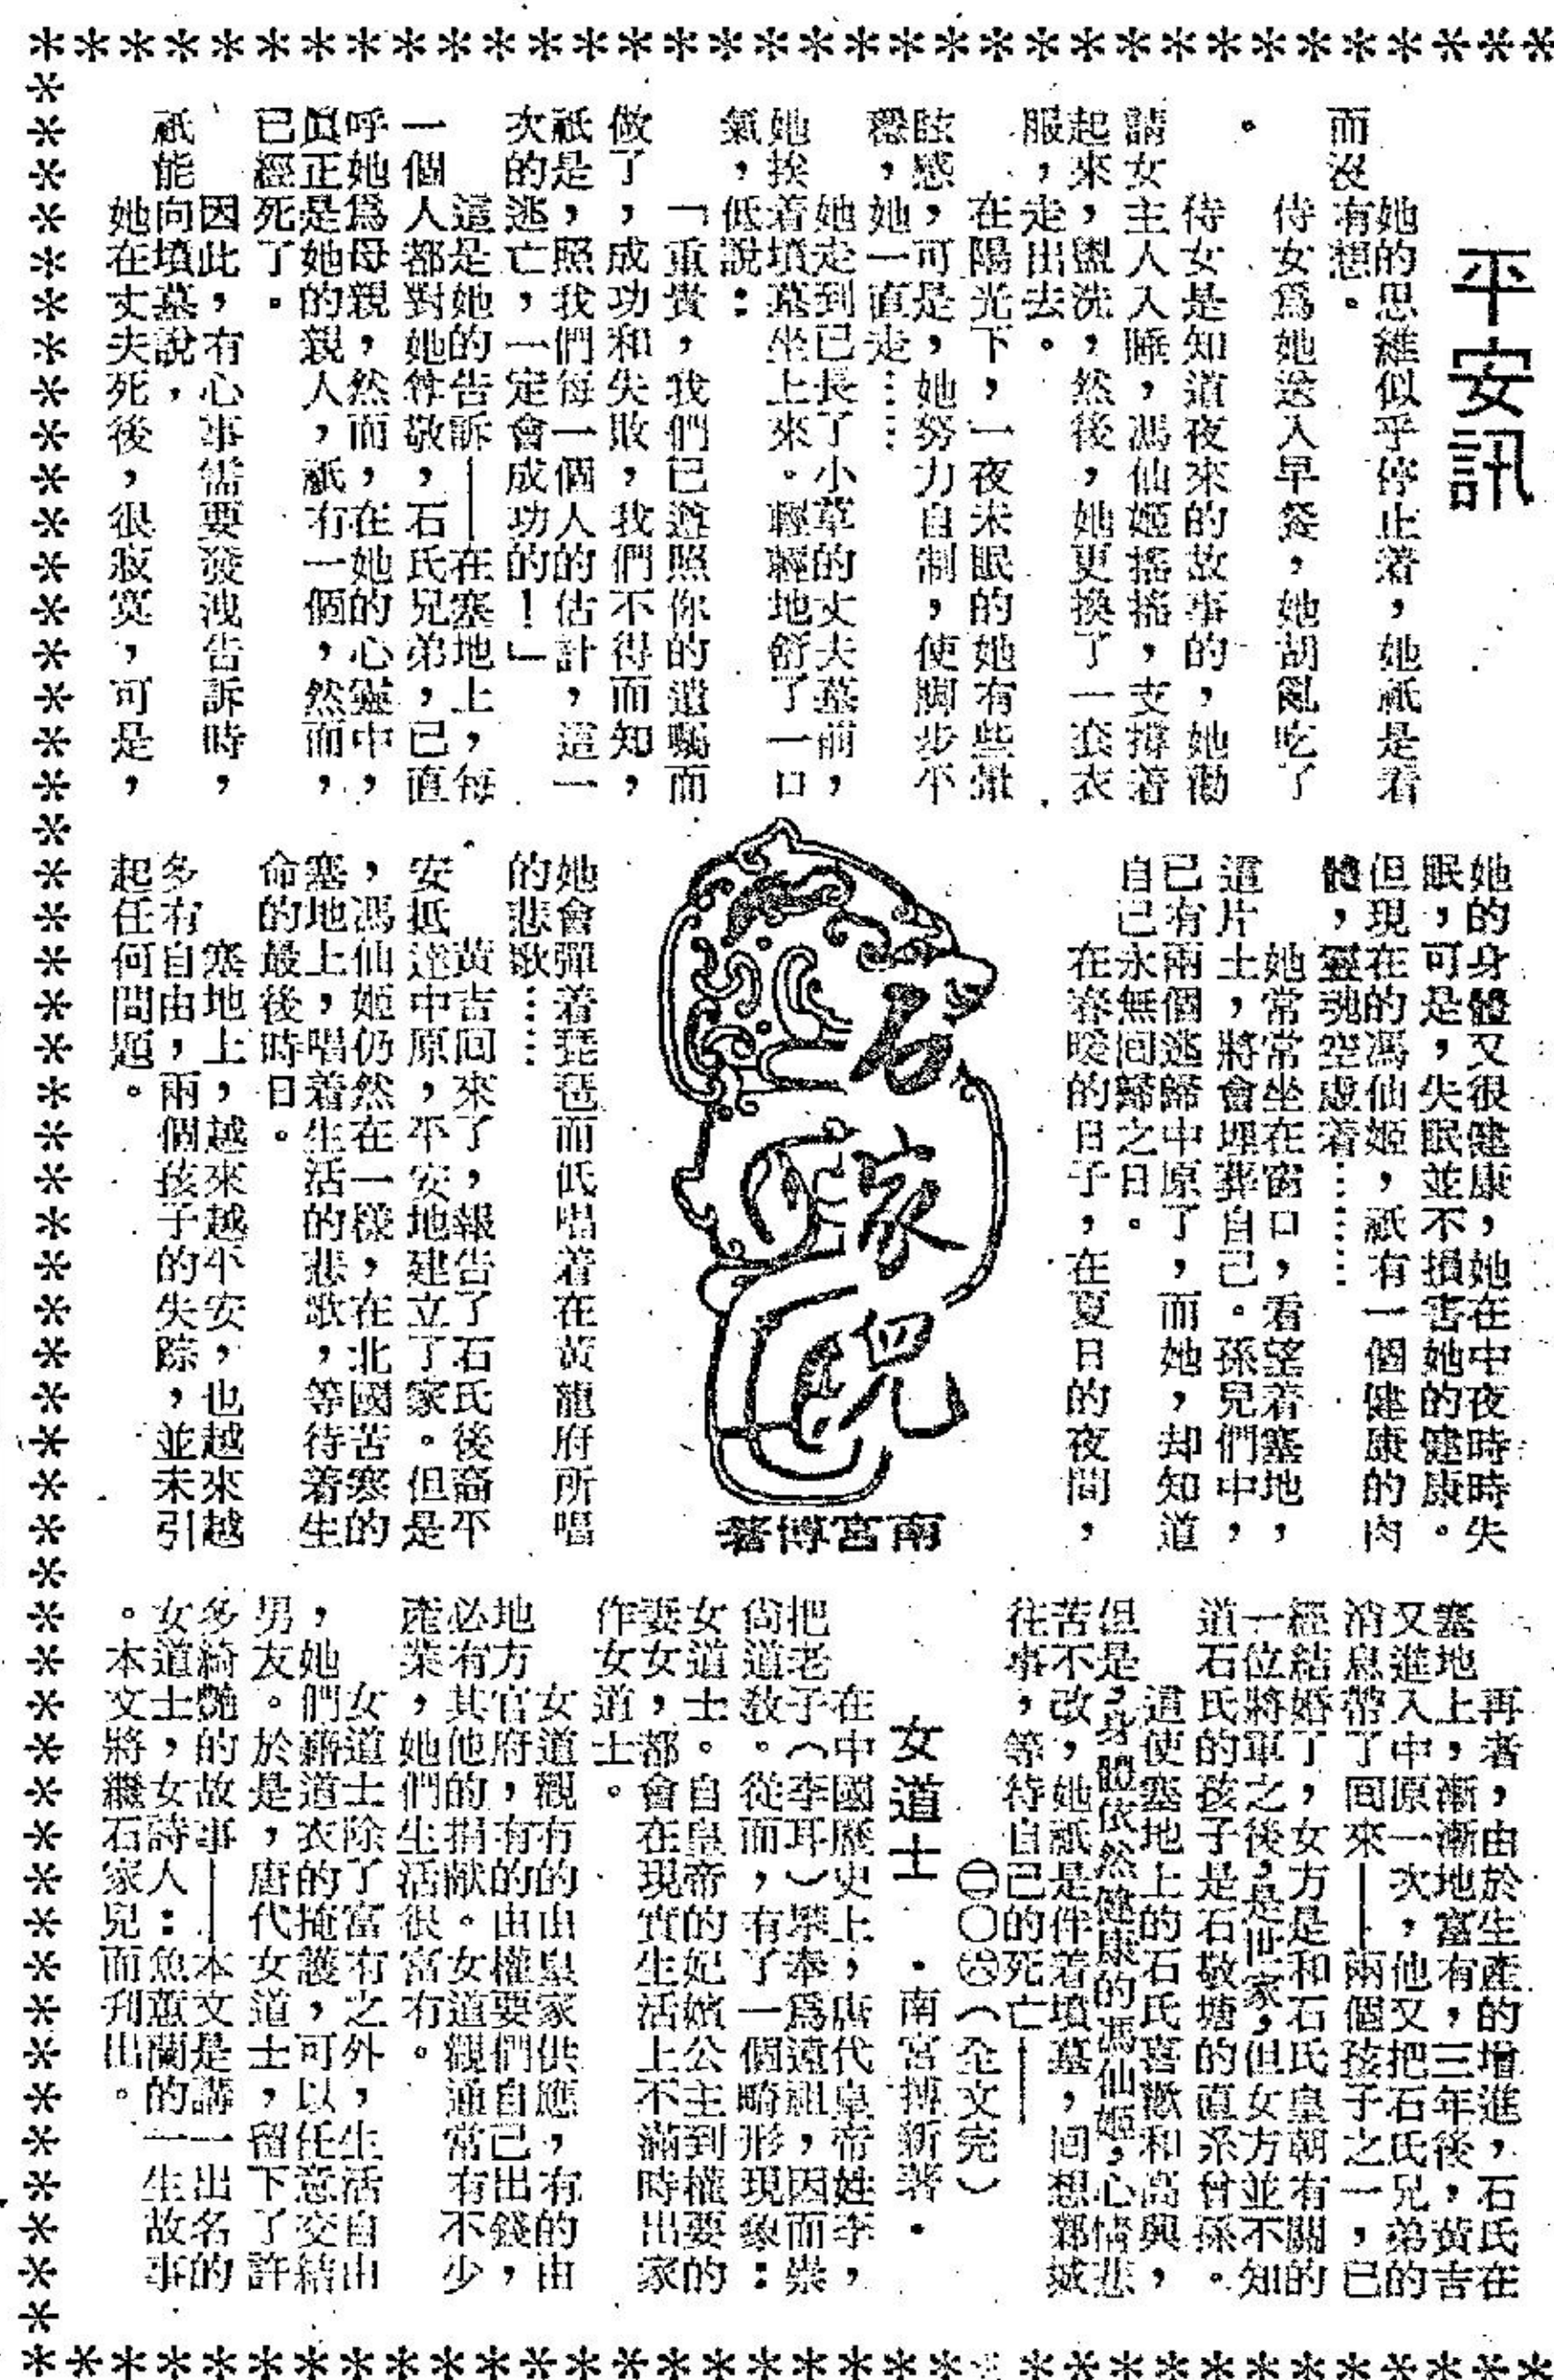 平安訊
她的思維似乎停止着，她祇是看
而沒有想。
侍女爲她送入早餐，她胡亂吃了
。
侍女是知道夜來的故事的，她勸
請女主人入睡，馮仙姬搖搖，支撐着
起來，盥洗，然後，她更換了一套衣
服，走出去。
在陽光下，一夜未眠的她有些暈
眩感，可是，她努力自制，使脚步不
穩，她一直走……
她走到已長了小草的丈夫墓前，
她挨着墳墓坐上來。輕輕地舒了一口
氣，低說：
「重貴，我們已遵照你的遺囑而
做了，成功和失敗，我們不得而知，
祇是，照我們每一個人的估計，這一
次的逃亡，一定會成功的！」
這是她的告訴——在塞地上，每
一個人都對她尊敬，石氏兄弟，已直
呼她爲母親，然而，在她的心靈中，
眞正是她的親人，祇有一個，然而，
已經死了。
因此，有心事需要發洩告訴時，
祇能向墳墓說，
她在丈夫死後，很寂寞，可是，
她的身體又很健康，她在中夜時時失
眠，可是，失眠並不損害她的健康。
但現在的馮仙姬，祇有一個健康的肉
體，靈魂空虛着……
她常常坐在窗口，看望着塞地，
這片土，將會埋葬自己。孫兒們中，
已有兩個逃歸中原了，而她，却知道
自己永無回歸之日。
在春暖的日子，在夏日的夜間，
石家兒
南宮博著
她會彈着琵琶而低唱着在黃龍府所唱
的悲歌……
黃吉回來了，報告了石氏後裔平
安抵達中原，平安地建立了家。但是
，馮仙姬仍然在一樣，在北國苦寒的
塞地上，唱着生活的悲歌，等待着生
命的最後時日。
塞地上，越來越平安，也越來越
多有自由，兩個孩子的失踪，並未引
起任何問題。
再者，由於生產的增進，石氏在
塞地上，漸漸地富有，三年後，黃吉
又進入中原一次，他又把石氏兄弟的
消息帶了回來——兩個孩子之一，已
經結婚了，女方是和石氏皇朝有關的
一位將軍之後，是世家，但女方並不知
道石氏的孩子是石敬塘的直系曾孫。
這使塞地上的石氏喜歡和高興，
但是，身體依然健康的馮仙姬，心情悲
苦不改，她祇是伴着墳墓，回想鄴城
往事，等待自己的死亡——
㊁〇㊅（全文完）
女道士　·南宮搏新著·
在中國歷史上，唐代皇帝姓李，
把老子（李耳）擧奉爲遠祖，因而崇
尙道敎。從而，有了一個畸形現象：
女道士。自皇帝的妃嬪公主到權要的
妻女，都會在現實生活上不滿時出家
作女道士。
女道觀有的由皇家供應，有的由
地方官府，有的由權要們自己出錢，
必有其他的捐献。女道觀通常有不少
產業，她們生活很富有。
女道士除了富有之外，生活自由
，她們藉道衣的掩護，可以任意交結
男友。於是，唐代女道士，留下了許
多綺艷的故事——本文是講一出名的
女道士，女詩人：魚蕙蘭的一生故事
。本文將繼石家兒而刋出。